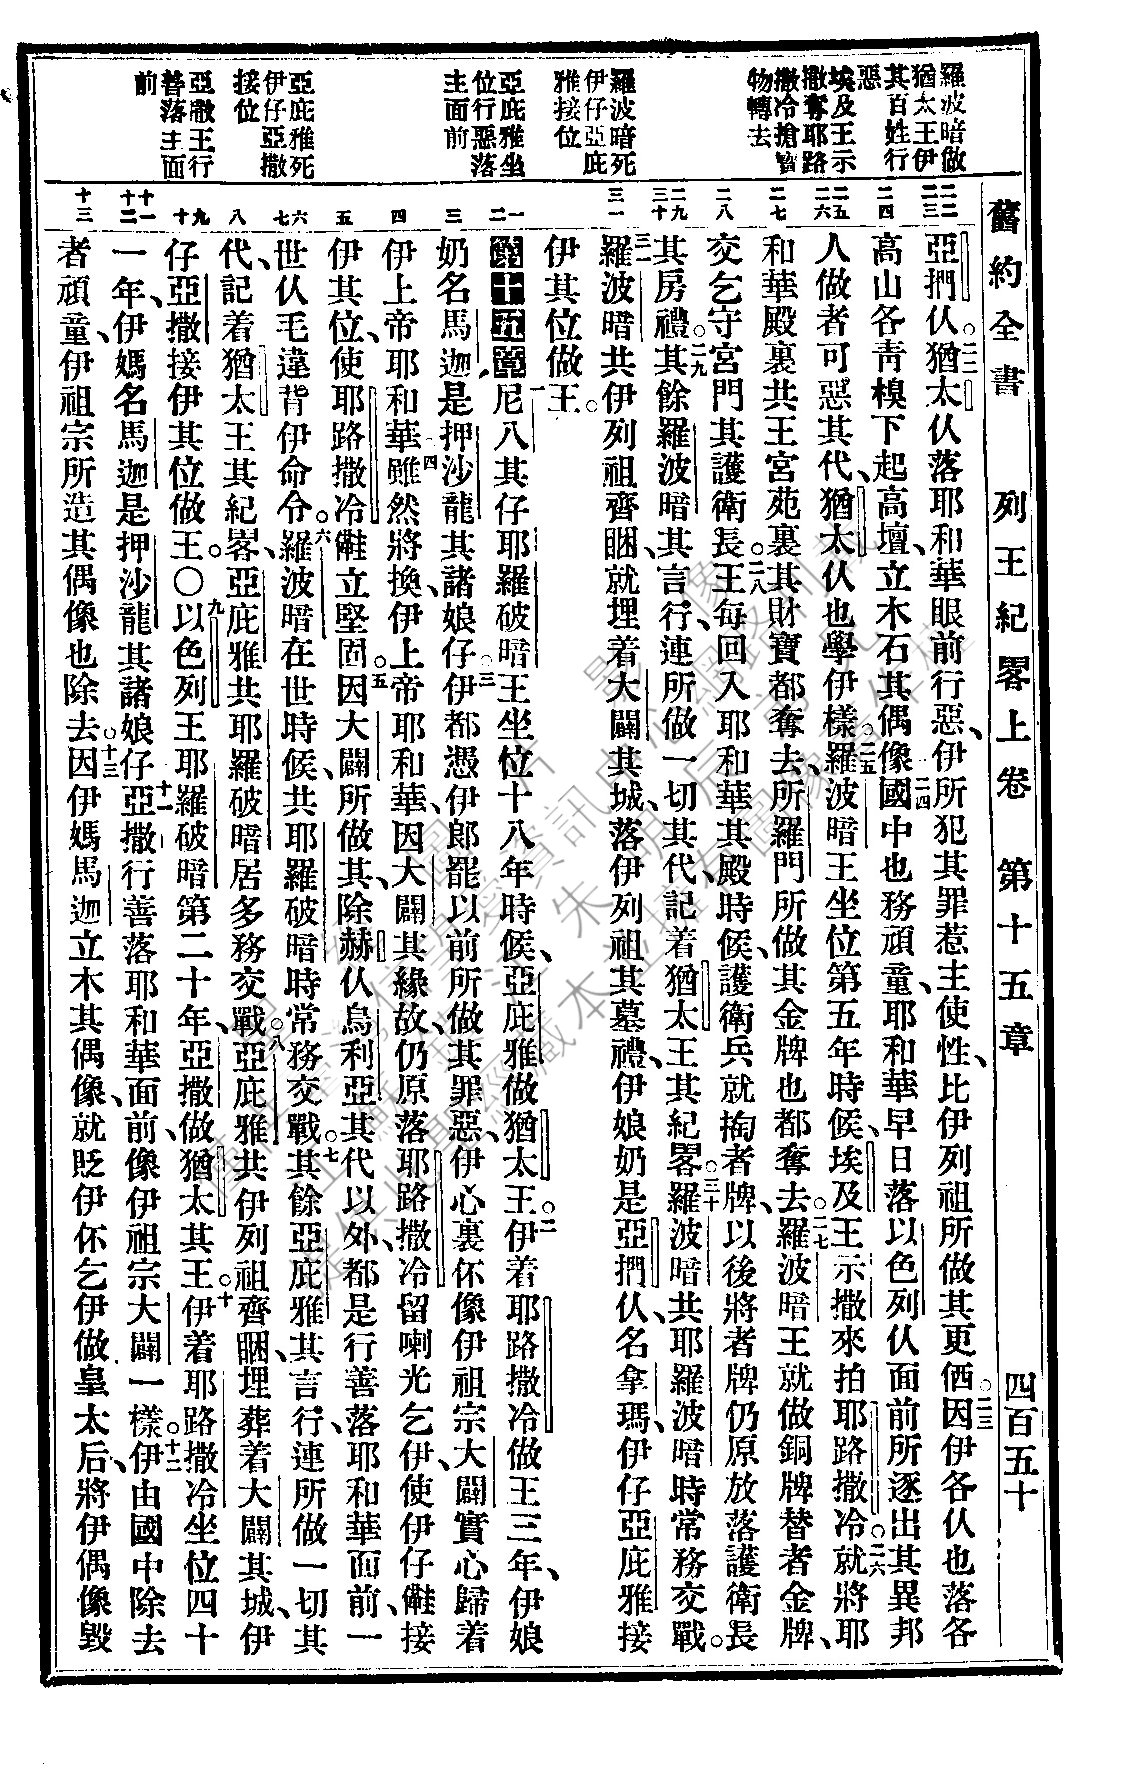 舊約全書 列王紀畧上卷 第十五章 四百五十
羅波暗做
猶太王伊
其百姓行
惡
埃及王示
撒奪耶路
撒冷搶寶
物轉去
羅波暗死
伊仔亞庇
雅接位
亞庇雅坐
位行惡落
主面前
亞庇雅死
伊仔亞撒
接位
亞撒王行
善落主面
前
二二 二三 二四 二五 二六 二七 二八 二九 三十 三一 一 二 三 四 五 六 七 八 九 十 十一 十二 十三
亞捫仈。二二猶太仈落耶和華眼前行惡、伊所犯其罪惹主使性、比伊列祖所做其更俹。二三因伊各仈也落各
高山各靑樸下起高壇、立木石其偶像。二四國中也務頑童、耶和華早日落以色列仈面前所逐出其異邦
人做者可惡其代、猶太仈也學伊樣。二五羅波暗王坐位第五年時候、埃及王示撒來拍耶路撒冷。二六就將耶
和華殿裏共王宮苑裏其財寶都奪去、所羅門所做其金牌也都奪去。二七羅波暗王就做銅牌替者金牌、
交乞守宮門其護衛長。二八王每回入耶和華其殿時候、護衛兵就掏者牌、以後將者牌仍原放落護衛長
其房禮。二九其餘羅波暗其言行、連所做一切其代、記着猶太王其紀畧。三十羅波暗共耶羅波暗時常務交戰。
三一羅波暗共伊列祖齊睏、就埋着大闢其城、落伊列祖其墓禮、伊娘奶是亞捫仈、名拿瑪、伊仔亞庇雅接
伊其位做王。
第十五章 一尼八其仔耶羅破暗王坐位十八年時候、亞庇雅做猶太王。二伊着耶路撒冷做王三年、伊娘
奶名馬迦、是押沙龍其諸娘仔。三伊都憑伊郎罷以前所做其罪惡、伊心裏伓像伊祖宗大闢實心歸着
伊上帝耶和華。四雖然將換、伊上帝耶和華因大闢其緣故、仍原落耶路撒冷留喇光乞伊、使伊仔㑚接
伊其位、使耶路撒冷㑚立堅固。五因大闢所做其、除赫仈烏利亞其代以外、都是行善落耶和華面前、一
世仈毛違背伊命令。六羅波暗在世時候、共耶羅破暗時常務交戰。七其餘亞庇雅其言行、連所做一切其
代、記着猶太王其紀畧、亞庇雅共耶羅破暗居多務交戰。八亞庇雅共伊列祖齊睏、埋葬着大闢其城、伊
仔亞撒接伊其位做王。〇九以色列王耶羅破暗第二十年、亞撒做猶太其王。十伊着耶路撒冷坐位四十
一年、伊媽名馬迦、是押沙龍其諸娘仔。十一亞撒行善落耶和華面前、像伊祖宗大闢一樣。十二伊由國中除去
者頑童、伊祖宗所造其偶像也除去。十三因伊媽馬迦立木其偶像、就貶伊伓乞伊做皇太后、將伊偶像毀